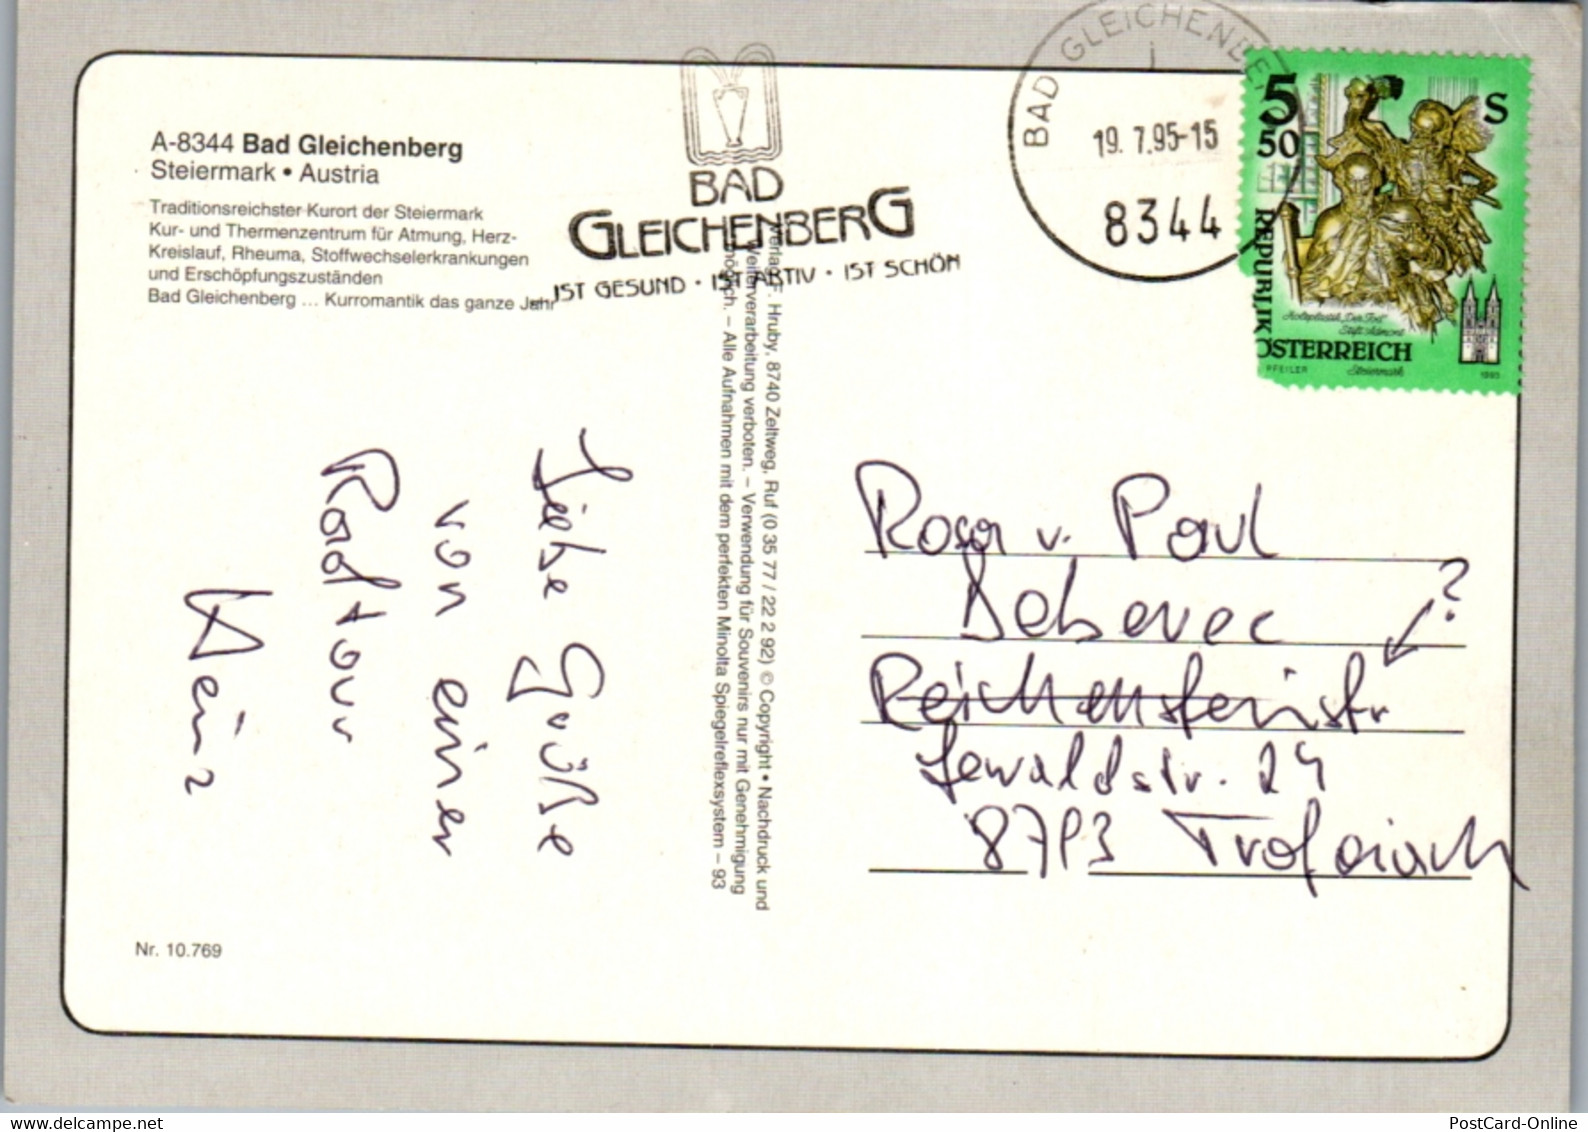 A-8344 Bad Gleichenberg
Steiermark • Austria
Traditionsreichster Kurort der Steiermark
Kur- und Thermenzentrum für Atmung, Herz-
Kreislauf, Rheuma, Stoffwechselerkrankungen
und Erschöpfungszuständen
Bad Gleichenberg ... Kurromantik das ganze Jahr
BAD
GLEICHENBERG
IST GESUND · IST AKTIV · IST SCHÖN
BAD GLEICHENBE
19.7.95-15
8344
5 S
50
REPUBLIK
Holzplastik "Der Tod"
Stift Admont
ÖSTERREICH
Steiermark
PFEILER 1993
Verlag F. Hruby, 8740 Zeltweg, Ruf (0 35 77 / 22 2 92) © Copyright • Nachdruck und
Weiterverarbeitung verboten. – Verwendung für Souvenirs nur mit Genehmigung
möglich. – Alle Aufnahmen mit dem perfekten Minolta Spiegelreflexsystem – 93
Liebe Grüße
von einer
Radtour
Heinz
Rosa v. Paul
Debevec
?
Reichensteinstr
24
8793 Trofaiach
Nr. 10.769
PostCard-Online